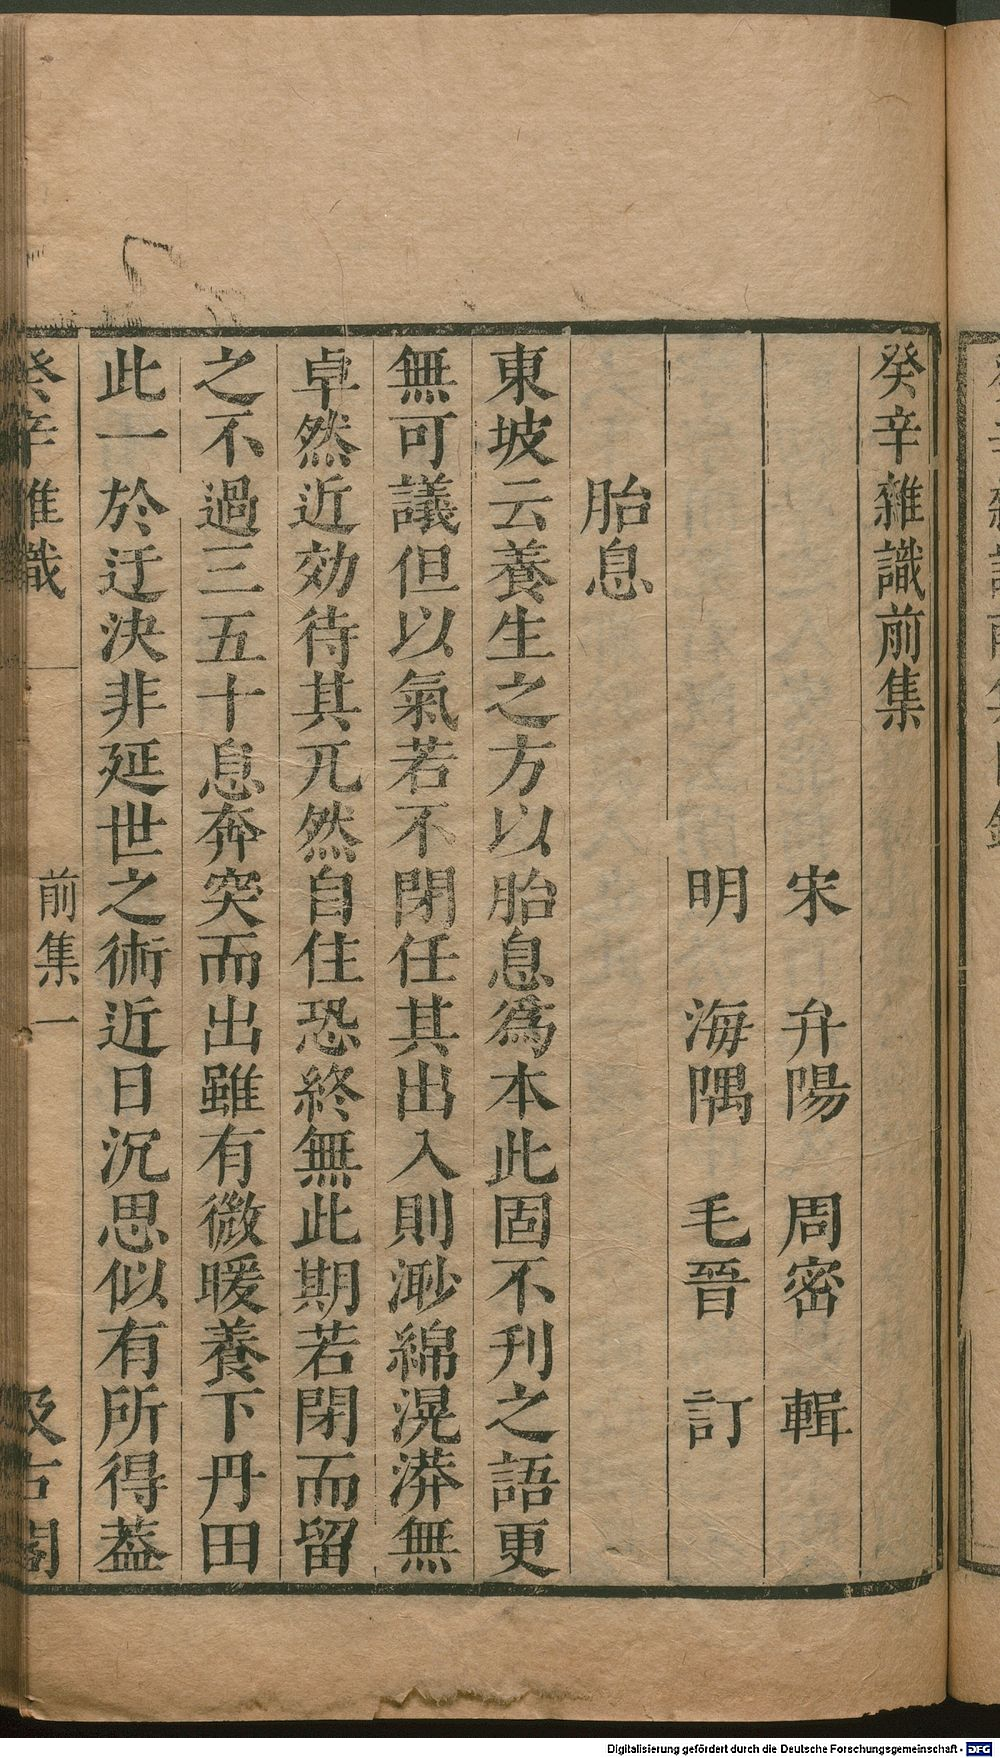 癸辛雜識前集
宋 弁陽 周密 輯
明 海隅 毛晉 訂
胎息
東坡云養生之方以胎息爲本此固不刋之語更
無可議但以氣若不閉任其出入則渺綿滉漭無
卓然近効待其兀然自住恐終無此期若閉而留
之不過三五十息奔突而出雖有微暖養下丹田
此一於迂決非延世之術近日沉思似有所得葢
癸辛雜識 前集一 汲古閣
Digitalisierung gefördert durch die Deutsche Forschungsgemeinschaft - DFG